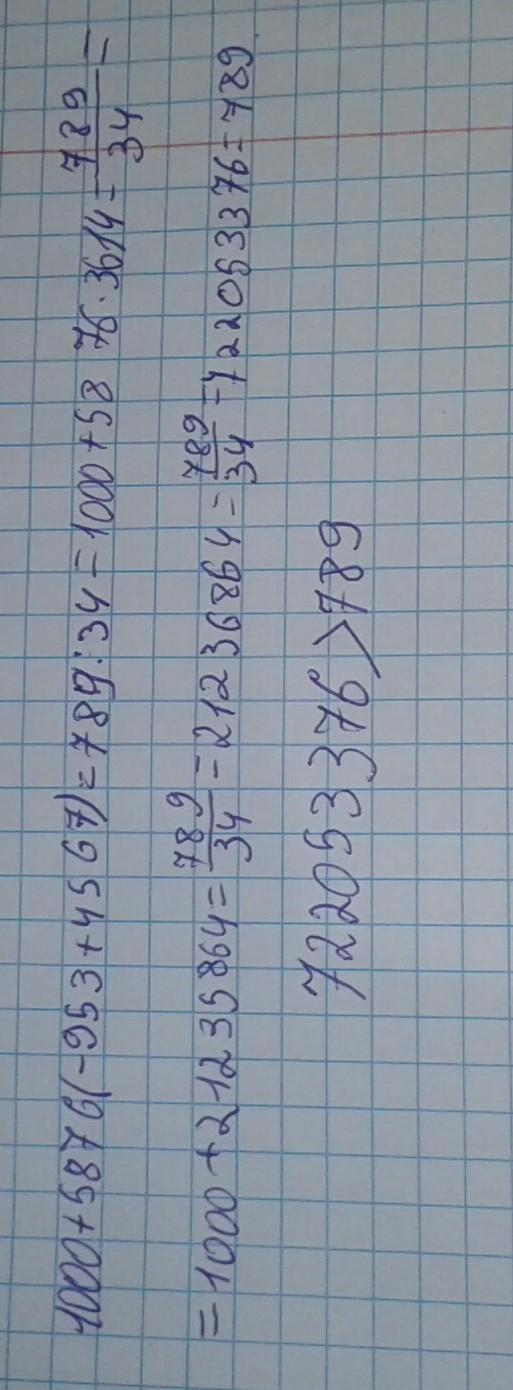 1000+5876(-953+4567)=789:34=1000+5876·3614=789/34=
=1000+21235864=789/34=21236864=789/34=722053376=789
722053376>789